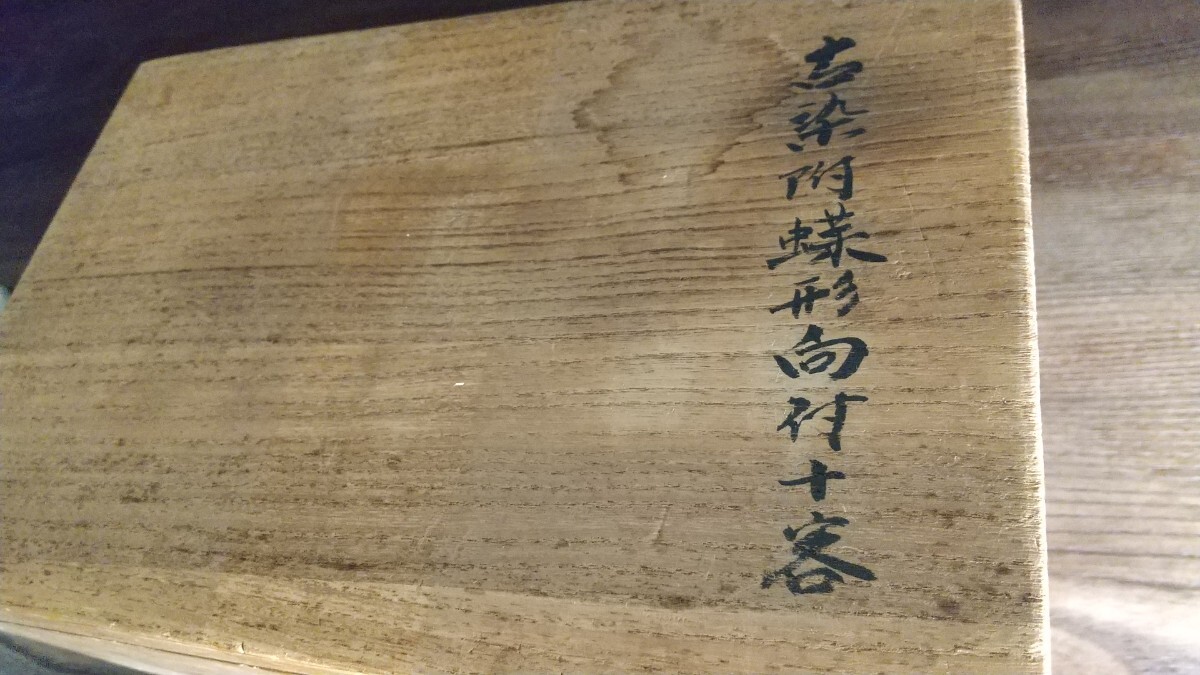 古染附蝶形向付十客